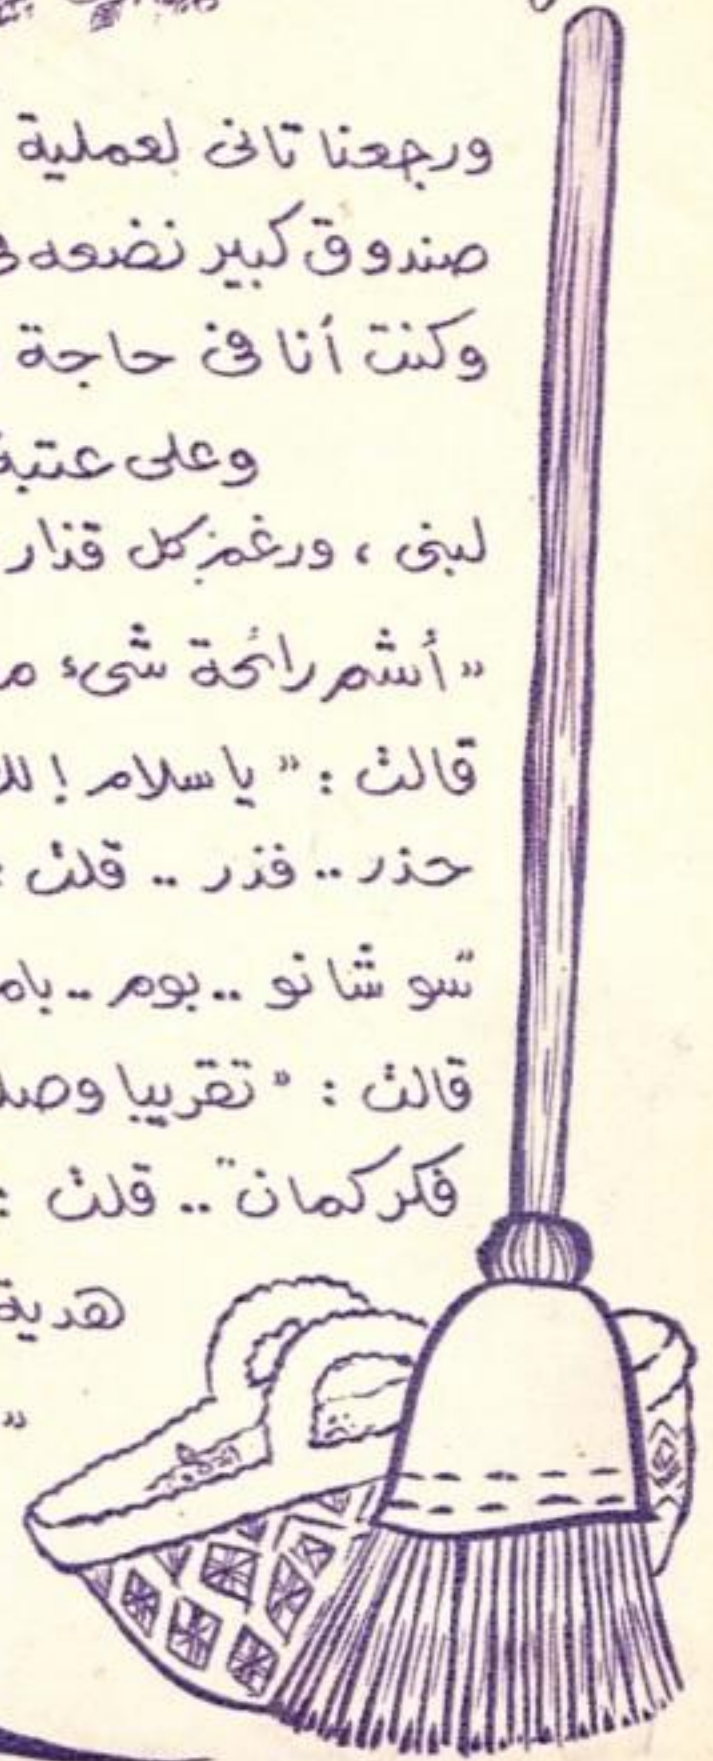 ورجعنا تانى لعملية
صندوق كبير نضعه
وكنت أنا فى حاجة
وعلى عتبة
لبنى ، ورغم كل قذار
„ أشم رائحة شىء م
قالت : „ يا سلام !
حذر .. فذر .. قلت :
شو شا نو .. بوم .. بام
قالت : „ تقريبا وصل
فكر كمان “ .. قلت :
هدية
„